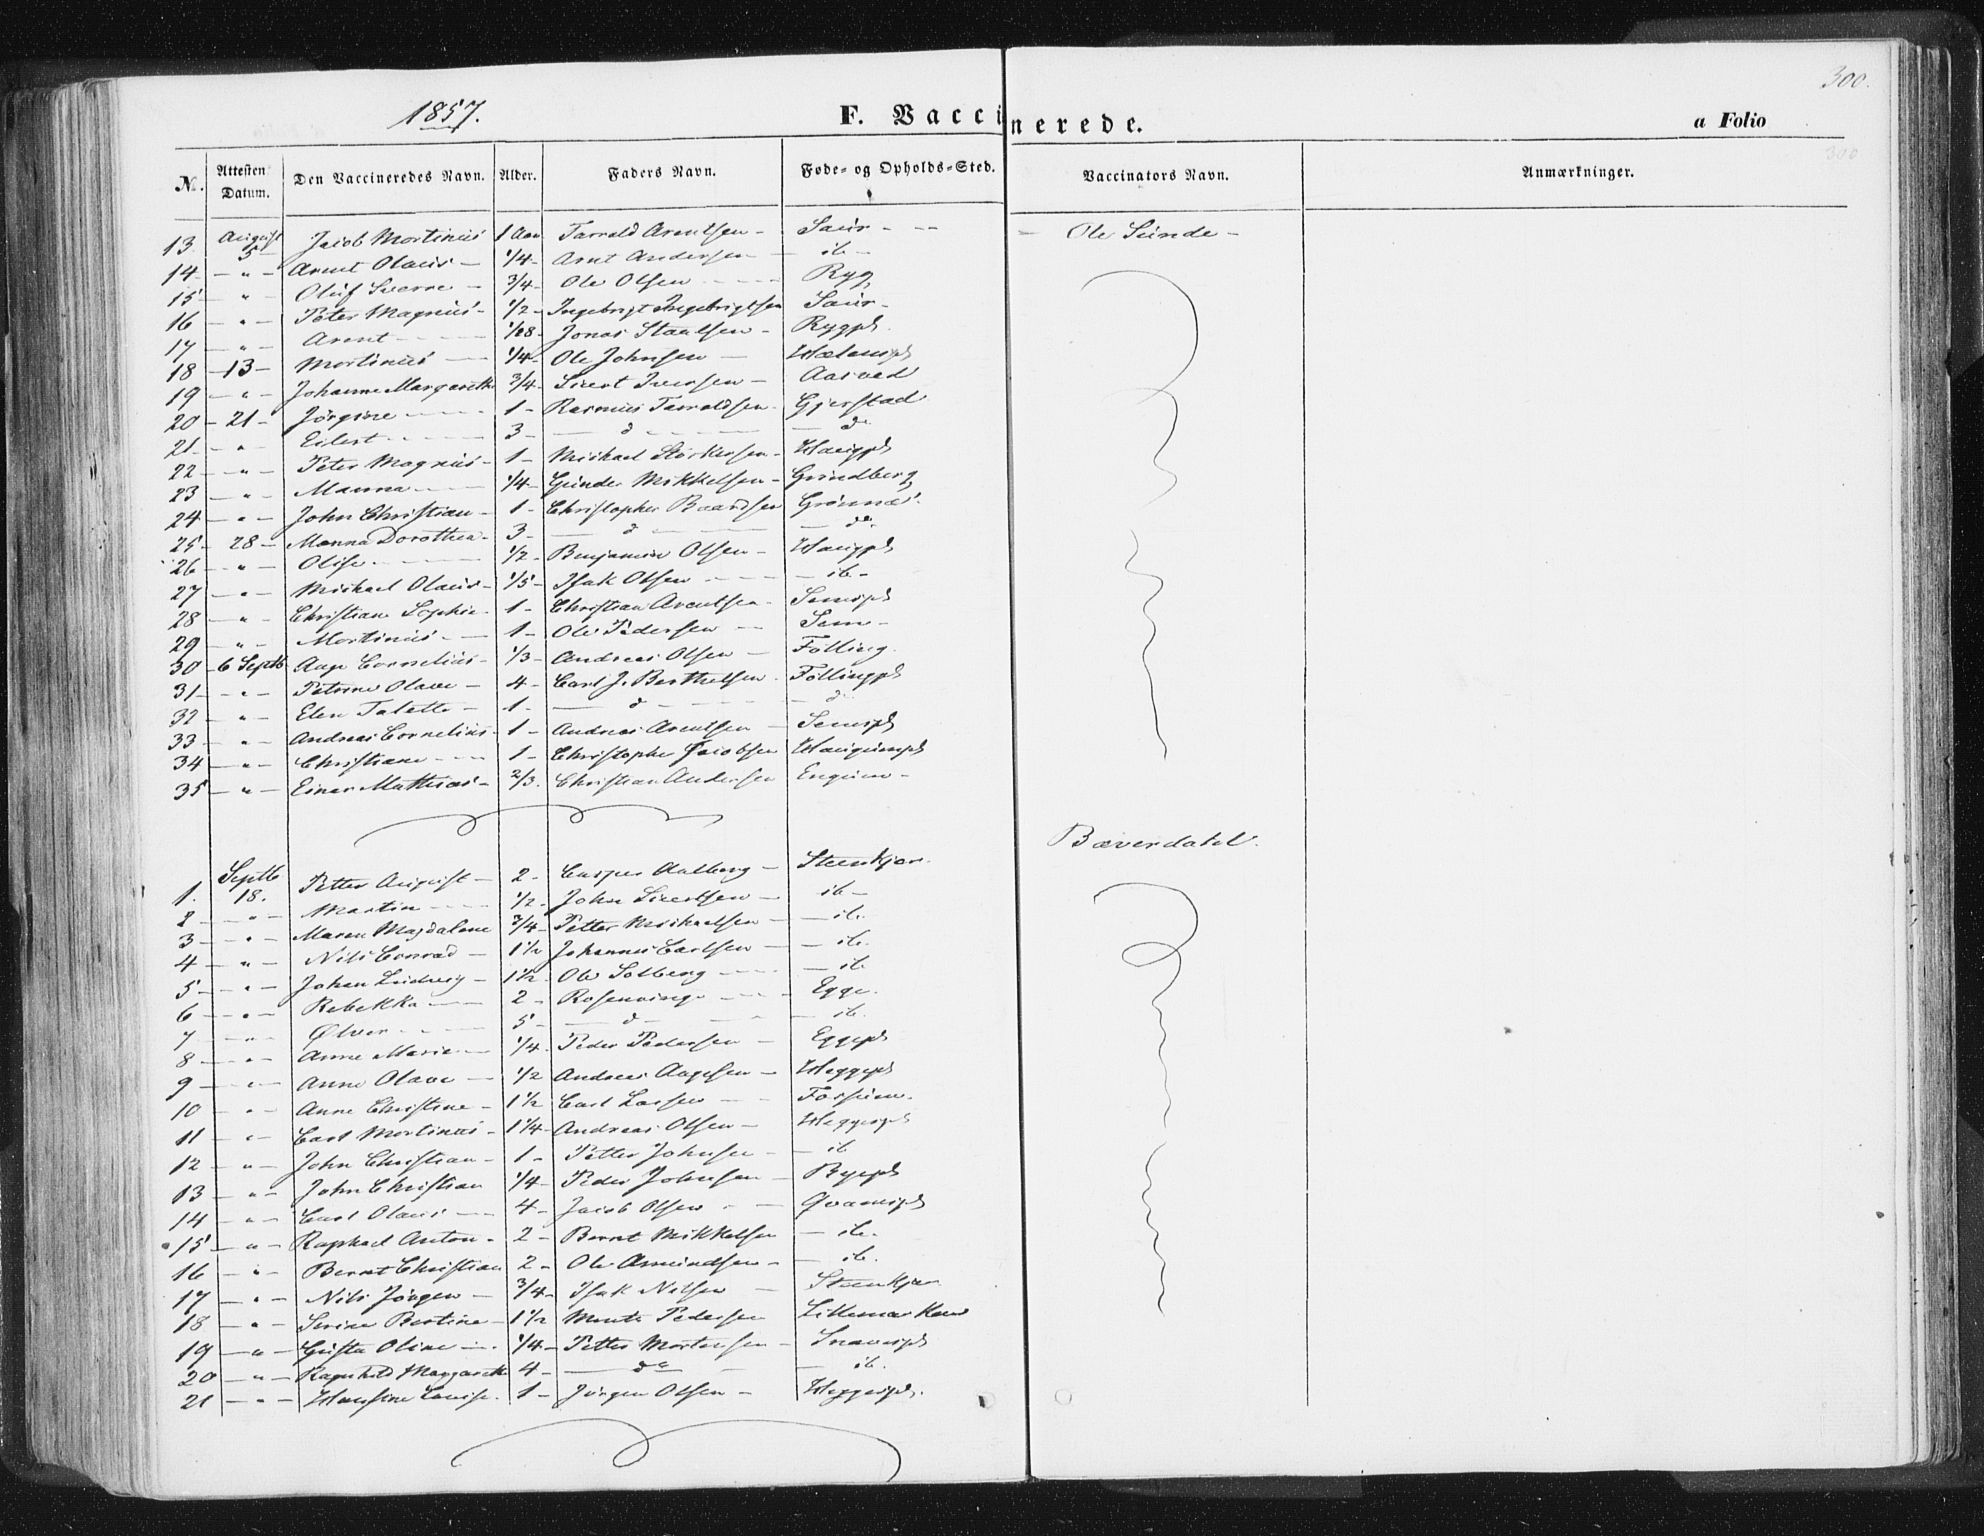 300.
1857. F. Vaccinerede. a Folio
300
No. Attesten Datum. Den Vaccineredes Navn. Alder. Faders Navn. Føde- og Opholds-Sted. Vaccinators Navn. Anmærkninger.
13 August 5 Jacob Mortinus 1 Aar Tarrald Arentsen - Saur - - Ole Sunde -
14 - " - Arent Olaus - 1/4 - Arnt Andersen - ib -
15 - " - Oluf Sverre - 3/4 - Ole Olsen - Ryg
16 - " - Peter Magnus - 1/2 - Ingebrigt Ingebrigtsen Saur -
17 - " - Arent - Jonas Staalsen - Rygpl.
18 - 13 - Mortinus - 1/4 - Ole Johnsen -
19 - " - Johanne Margareth 3/4 - Sivert Iversen - Aasved
20 - 21 - Jörgine - 1 - Rasmus Tarraldsen - Gjerstad
21 - " - Eilert - 3 - d - do
22 - " - Peter Magnus - 1 - Michael Störkersen - Haugpl
23 - " - Manna - 1/4 - Gunder Mikkelsen - Grindberg
24 - " - John Christian - 1 - Christopher Baardsen Grönnæs
25 - 28 - Manna Dorothea - 3 - d - do
26 - " - Olise - 1/2 - Benjamin Olsen - Haugpl
27 - " - Michael Olaus - 1/5 - Isak Olsen - ib -
28 - " - Christian Sophie - 1 - Christian Arentsen - Semspl
29 - " - Mortinus - 1 - Ole Pedersen - Sem -
30 - 6 Septb Aage Cornelius - 1/3 - Andreas Olsen - Fölling
31 - " - Petrine Olave - 4 - Carl J. Berthelsen - Föllingpl
32 - " - Elen Talette - 1 - d - d
33 - " - Andreas Cornelius - 1 - Andreas Arentsen - Semspl
34 - " - Christiane - 1 - Christopher Jacobsen Haugumpl
35 - " - Einar Mathias - 2/3 - Christian Andersen Enguim -
Bæverdahl.
1. Septb 18. Petter August - 2 - Casper Aalberg - Steenkjær
2 - " - Martin - 1/2 - John Sivertsen - ib -
3 - " - Maren Magdalene 3/4 - Petter Michaelsen - ib.
4 - " - Nils Conrad - 1 1/2 Johannes Carlsen - ib.
5 - " - Johan Ludvig - 1 1/2 - Ole Solberg - ib
6 - " - Rebekka - 2 - Rosenvinge - Egge.
7 - " - Ölver - 5 - d - ib.
8 - " - Anne Marie - 1/4 - Peder Pedersen - Eggepl
9 - " - Anne Olave - 1/2 Andreas Aagesen - Heggepl
10 - " - Anne Christine - 1 1/2 Carl Larsen - Forsum.
11 - " - Carl Mortinus - 1 1/4 - Andreas Olsen - Heggepl
12 - " - John Christian - 1 - Petter Johnsen - ib
13 - " - John Christian 1/4 - Peder Johnsen - Byepl
14 - " - Carl Olaus - 4 - Jacob Olsen - Qvamspl
15 - " - Raphael Anton - 2 - Bernt Mikkelsen - ib.
16 - " - Bernt Christian 2 - Ole Amundsen - ib.
17 - " - Nils Jörgen - 3/4 - Isak Nilsen - Steenkjær
18 - " - Serine Bertine - 1 1/2 Monts Pedersen Lillemarken
19 - " - Gusta Oline - 1/4 - Petter Mortensen -
20 - " - Ragnhild Margareth 4 - do - ib.
21 - " - Hansine Louise. 1 - Jörgen Olsen - Heggepl.